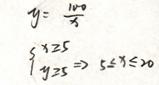 y = 100/x
{ x≥5
{ y≥5 ⇒ 5≤x≤20